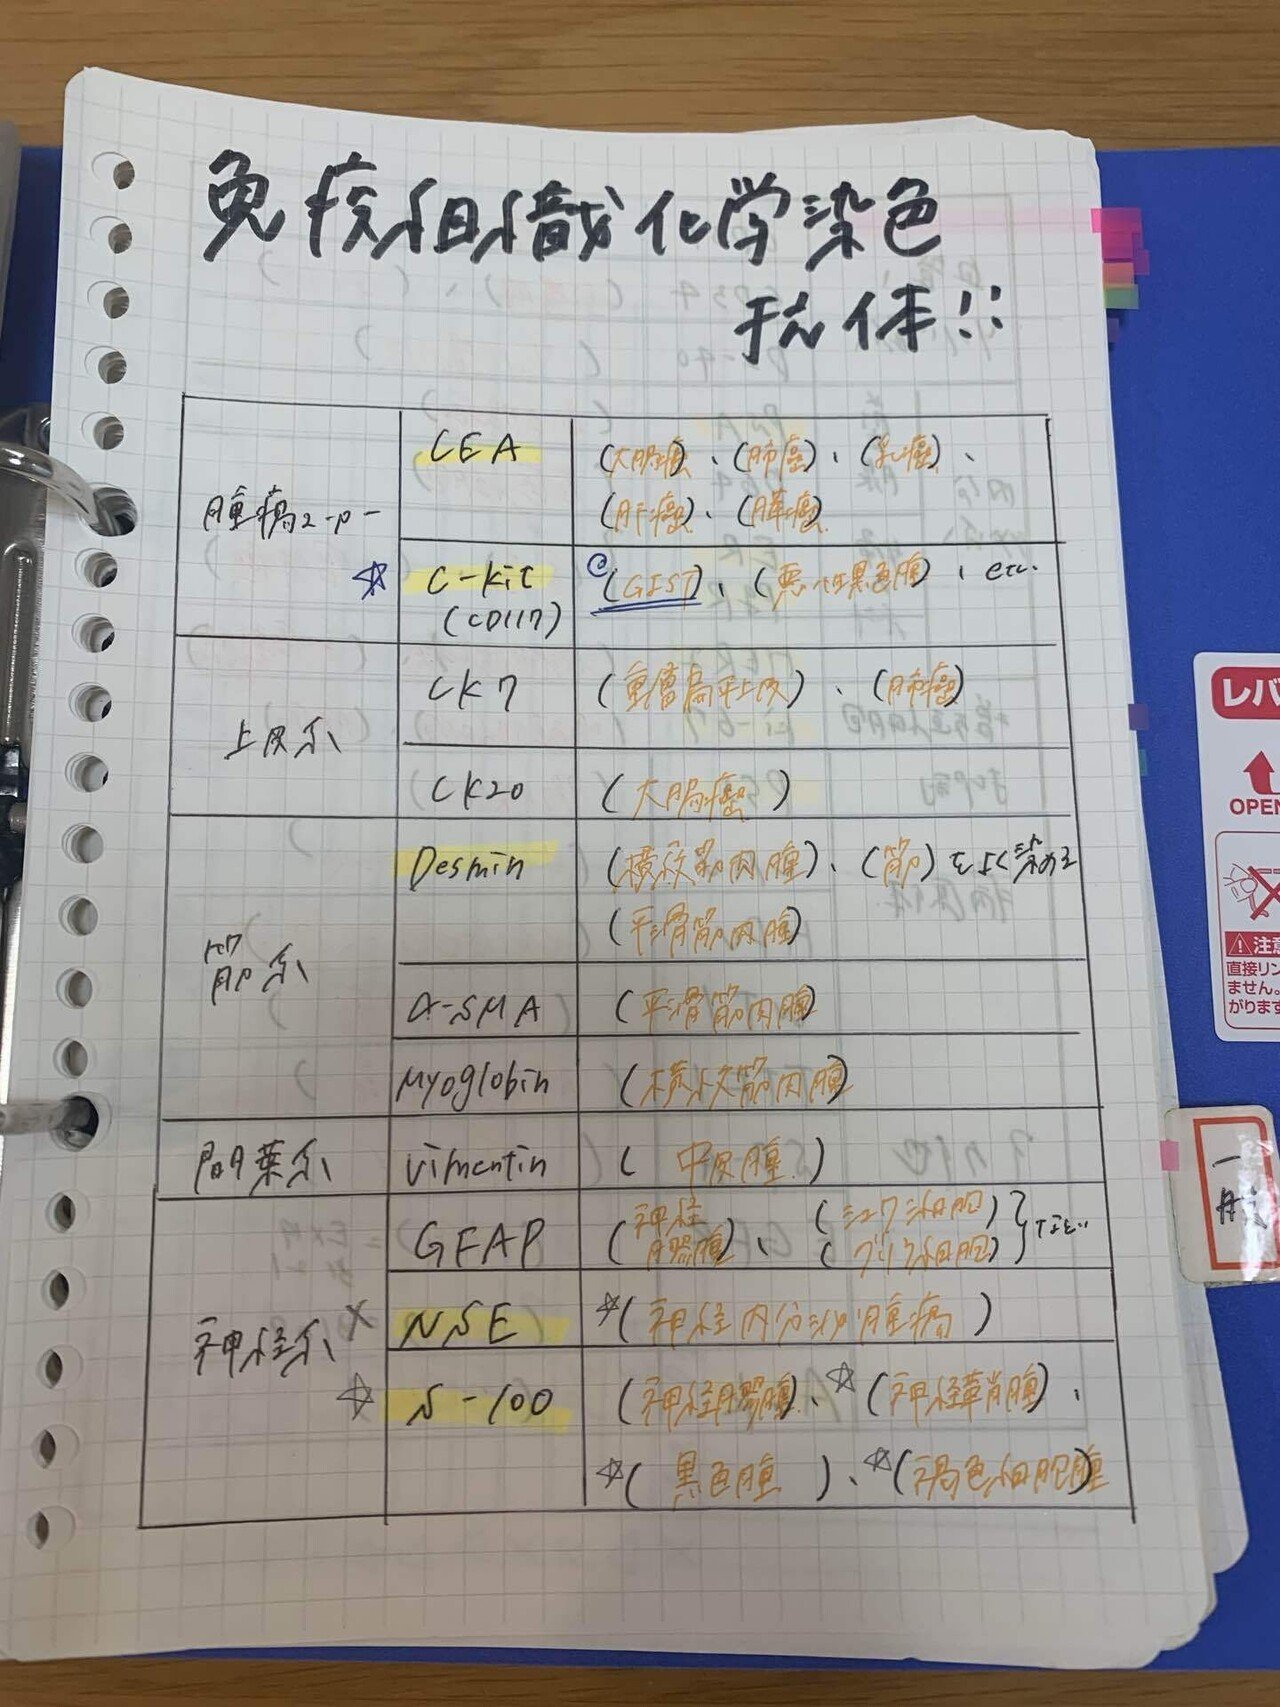 免疫組織化学染色
抗体!!
腫瘍マーカー
CEA
(大腸癌)、(肺癌)、(乳癌)、
(肝癌)、(膵癌)
☆ C-kit
(CD117)
◎(GIST)、(悪性黒色腫)、etc.
上皮系
CK7
(重層扁平上皮)、(肺癌)
CK20
(大腸癌)
筋系
Desmin
(横紋筋肉腫)、(筋)をよく染める
(平滑筋肉腫)
α-SMA
(平滑筋肉腫)
Myoglobin
(横紋筋肉腫)
間葉系
Vimentin
(中皮腫)
神経系
GFAP
(神経膠腫)、(シュワン細胞)(グリア細胞)など
☆ NSE
☆(神経内分泌腫瘍)
☆ S-100
(神経膠腫)、☆(神経鞘腫)、
☆(黒色腫)、☆(褐色細胞腫)
レバ
OPEN
注意
直接リン
ません。
がります
一般